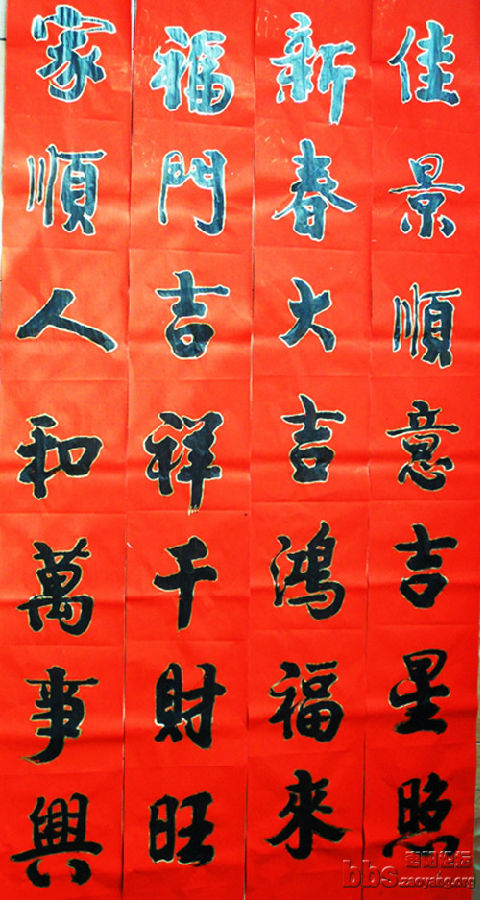 佳景順意吉星照
新春大吉鸿福來
福門吉祥千財旺
家順人和萬事興
bbs.zaoyang.org